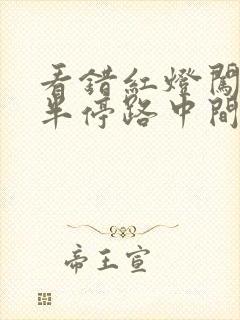 看錯紅燈闖
半停路中間
帝王宣